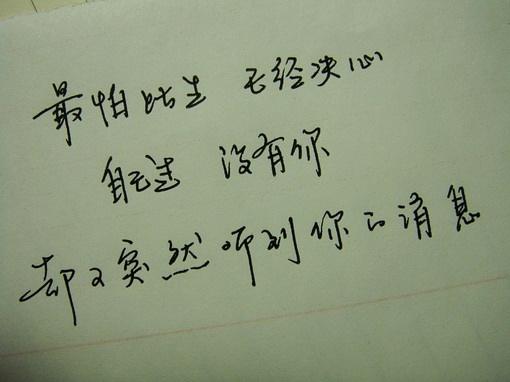 最怕此生 已经决心
自己过 没有你
却又突然听到你的消息